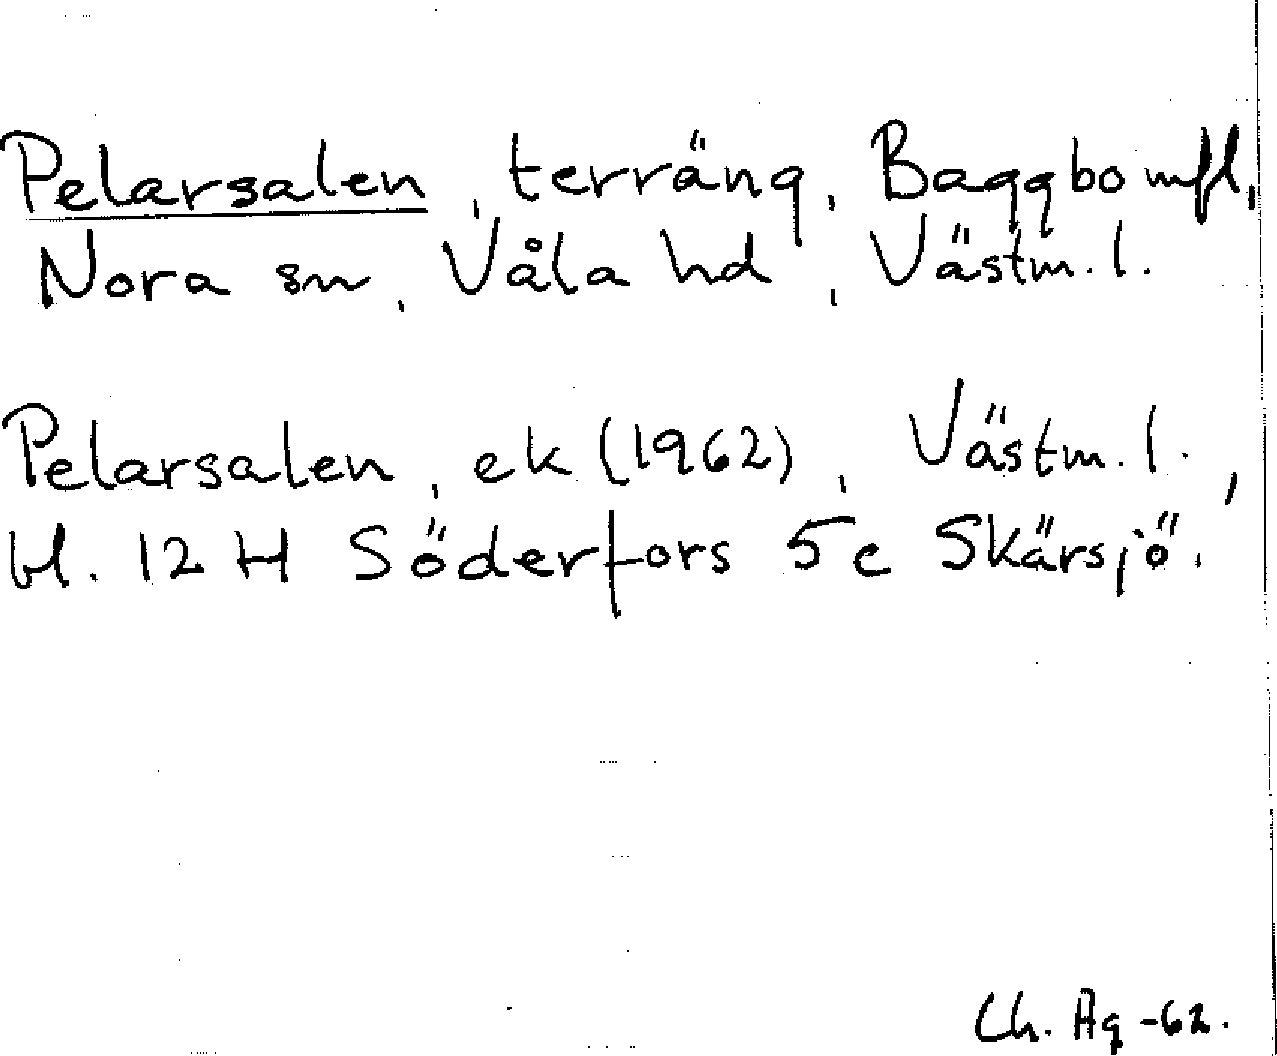 Pelarsalen, terräng, Baggbo mfl,
Nora sn, Våla hd, Västm. l.
Pelarsalen, ek (1962), Västm. l.,
bl. 12 H Söderfors 5c Skärsjö.
Ch. Ag -62.